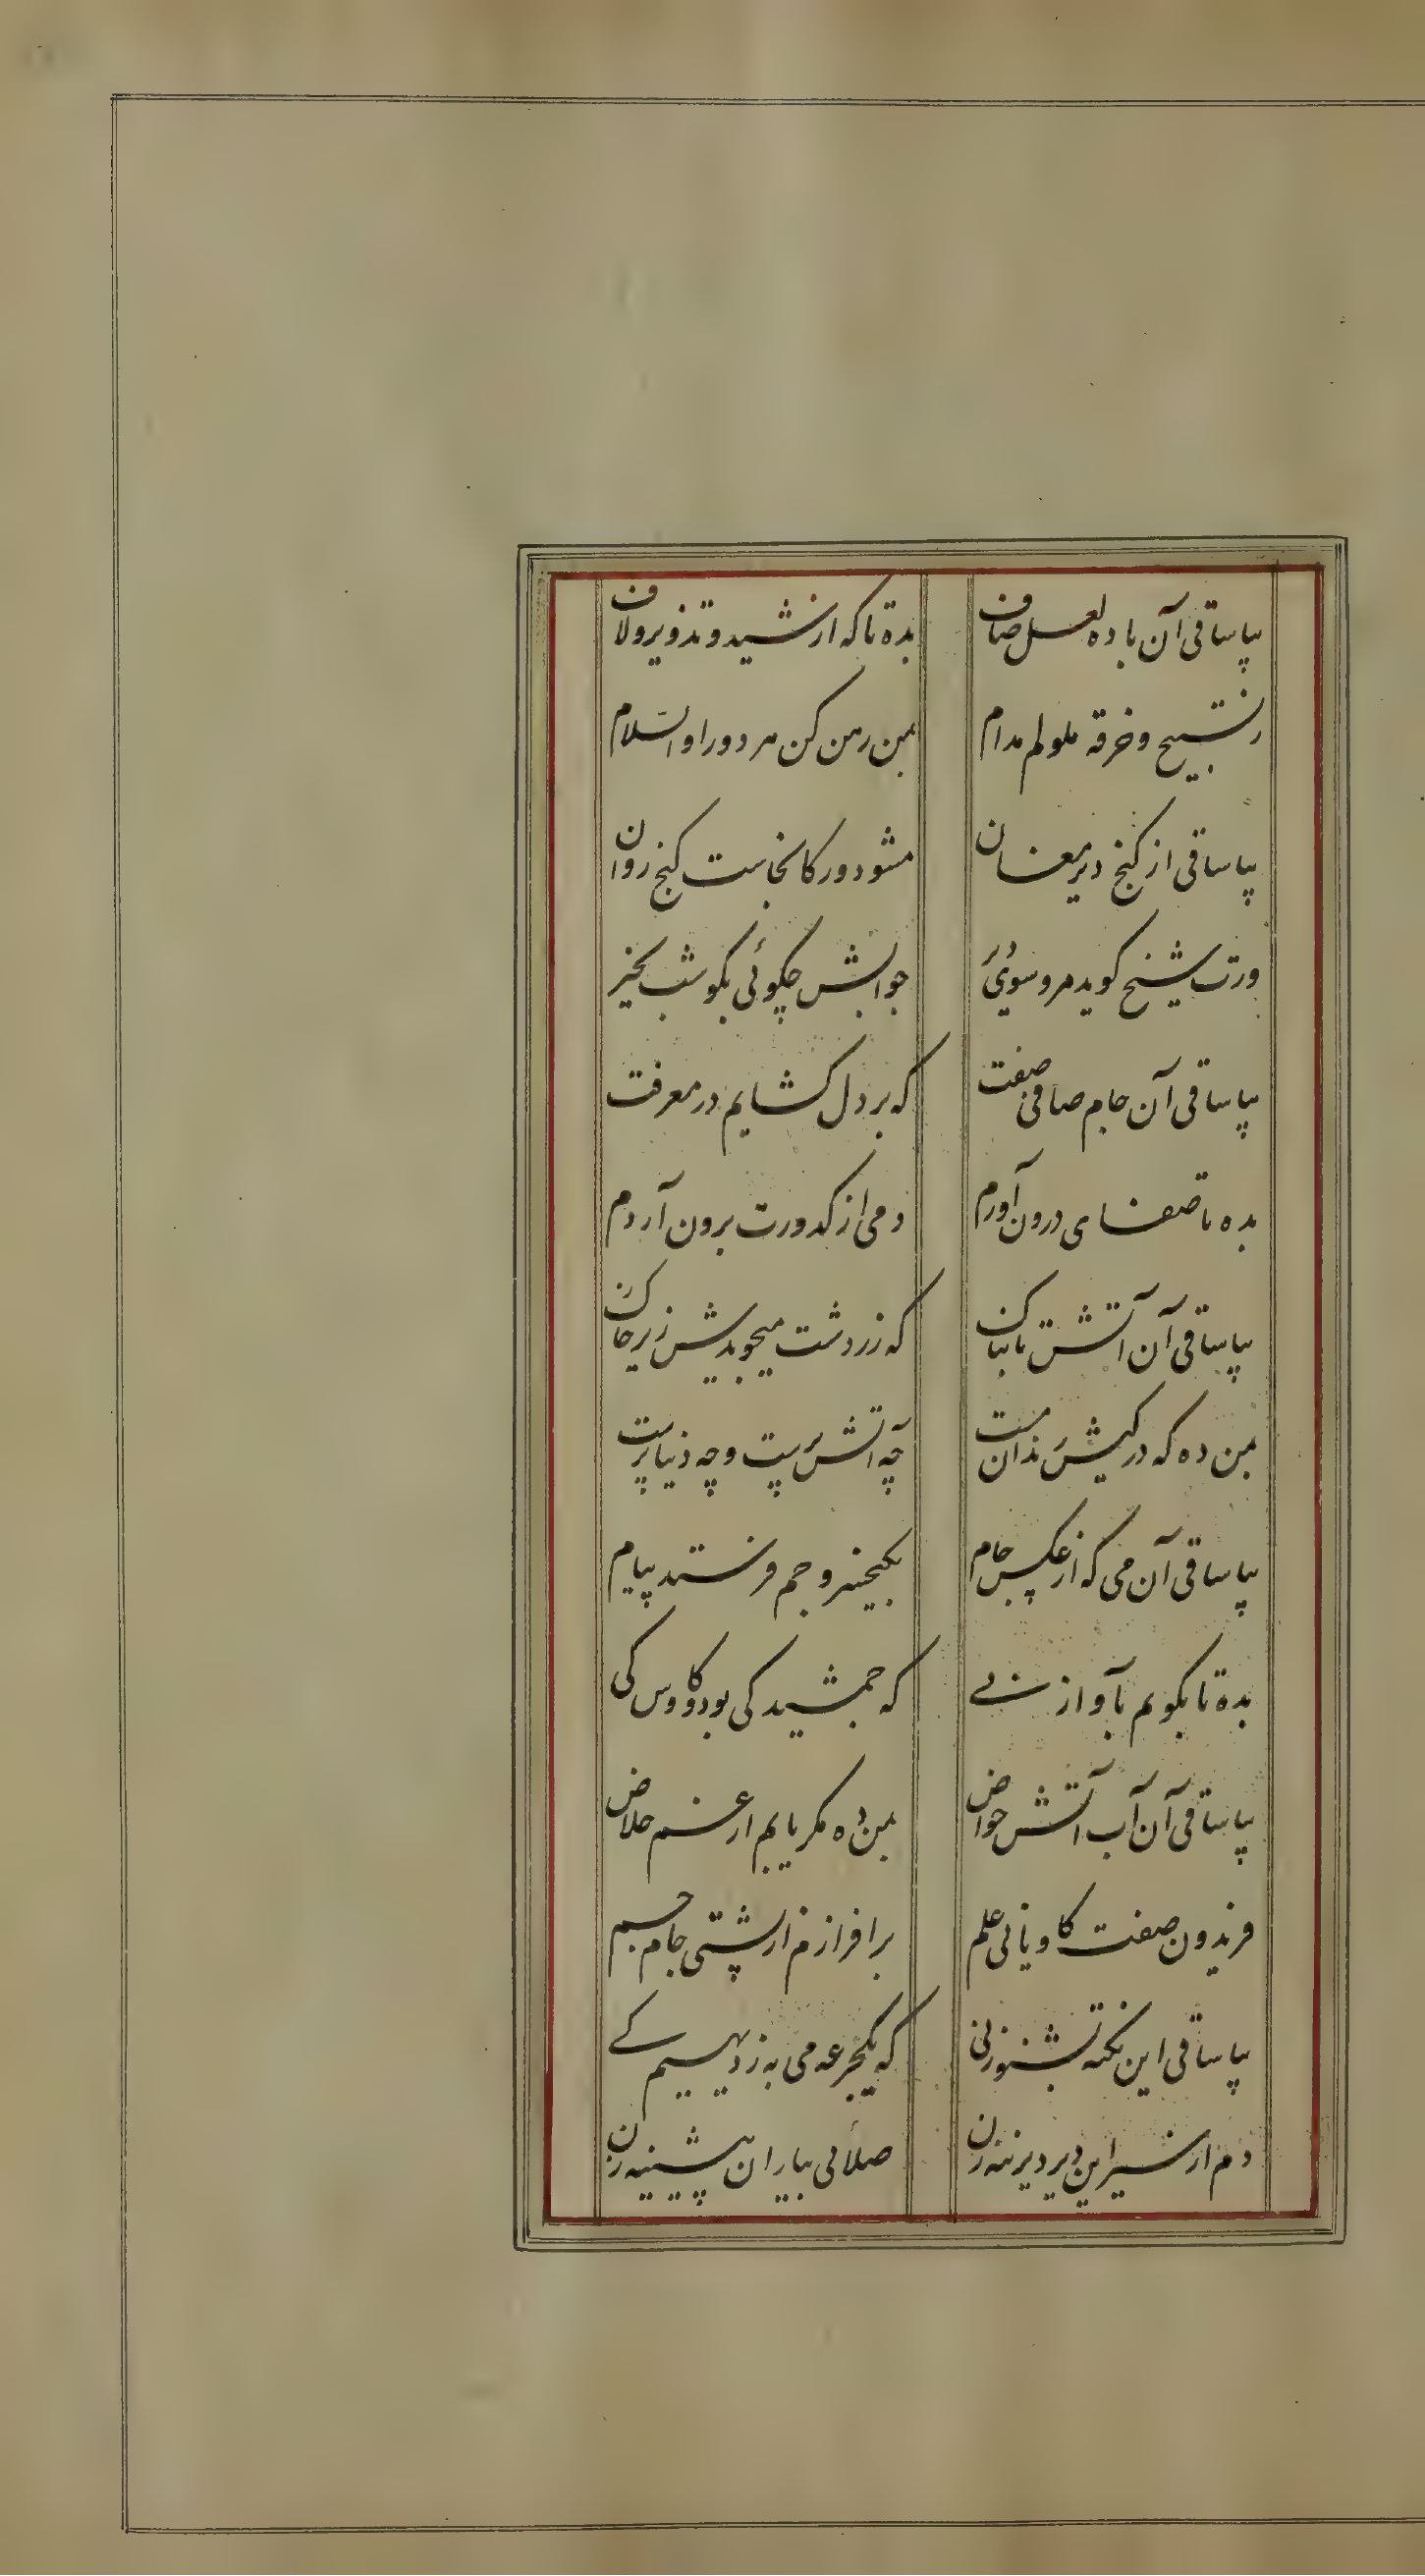 بیا ساقی آن باده لعل صاف بده تا که از شید و تزویر و لاف
ز تسبیح و خرقه ملولم مدام بمن رهن کن هر دو را والسّلام
بیا ساقی از کنج دیر مغان مشو دور کانجاست کنج روان
ورت شیخ کوید مرو سوی دیر جوابش چکوئی بکو شب بخیر
بیا ساقی آن جام صافی صفت که بر دل کشایم در معرفت
بده تا صفای درون آوردم دمی از کدورت برون آردم
بیا ساقی آن آتش تابناک که زردشت میجویدش زیر خاک
بمن ده که در کیش رندان مست چه آتش پرست و چه دنیا پرست
بیا ساقی آن می که از عکس جام بکیخسرو و جم فرستد پیام
بده تا بکویم بآواز نے که جمشید کی بود و کاووس کی
بیا ساقی آن آب آتش خواص بمن ده مکر یابم از غم خلاص
فریدون صفت کاویانی علم برافرازم از پشتی جام جم
بیا ساقی این نکته بشنو ز نی که یکجرعه می به ز دیهیم کے
دم از سیر این دیر دیرینه زن صلائی بیاران پیشینه زن